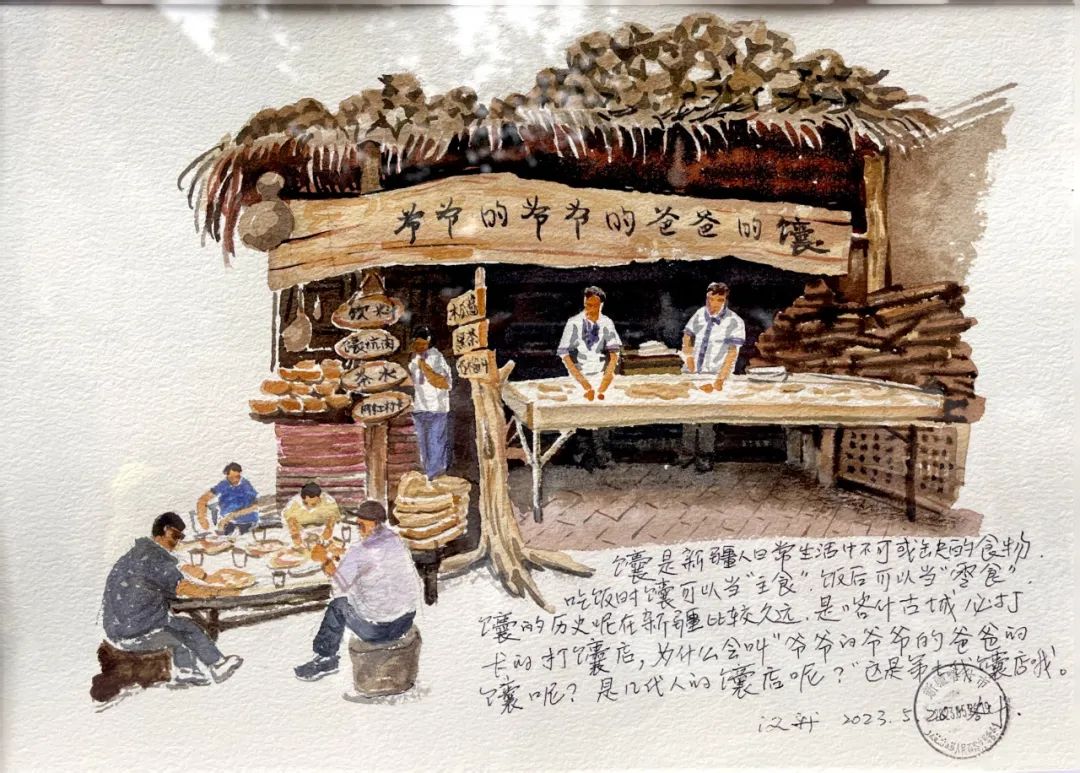 爷爷的爷爷的爸爸的馕
饮料
馕坑肉
茶水
黑茶
馕是新疆人日常生活中不可或缺的食物.
吃饭时馕可以当"主食".饭后可以当"零食".
馕的历史呢在新疆比较久远.是喀什古城必打
卡的打馕店,为什么会叫"爷爷的爷爷的爸爸的
馕呢?是几代人的馕店呢?"这是第 馕店哦。
2023.5.